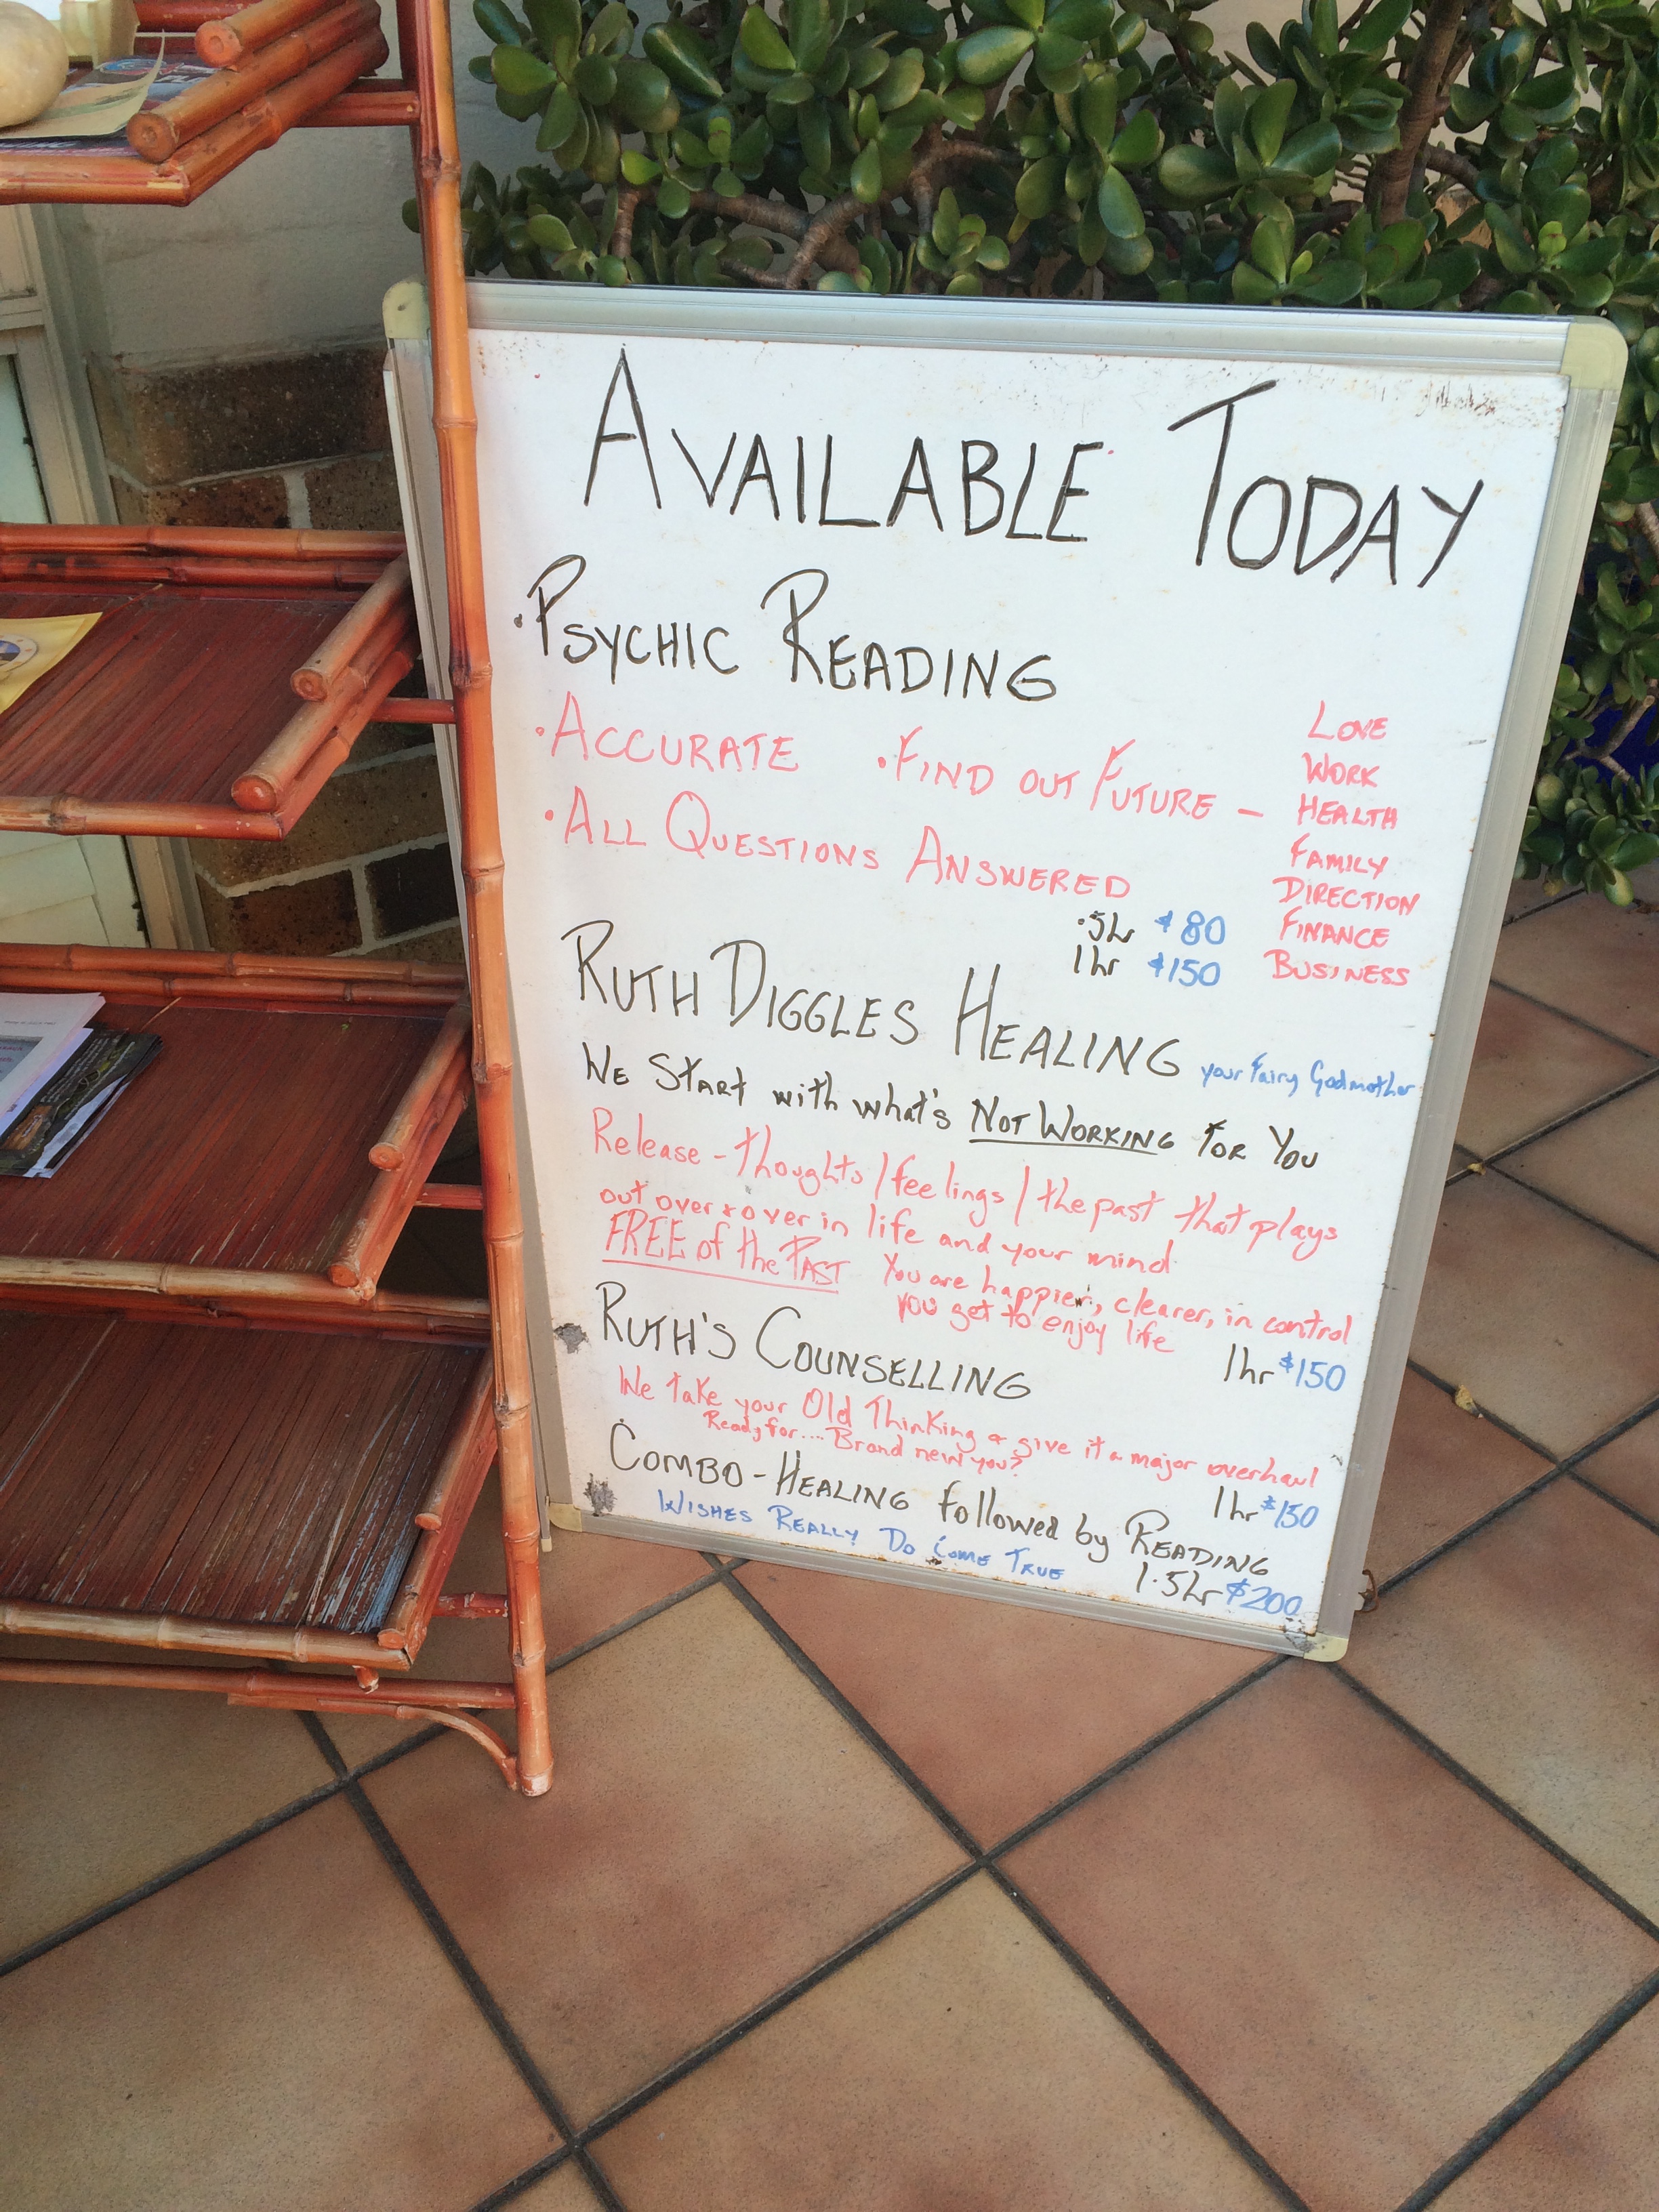 AVAILABLE TODAY
• PSYCHIC READING
• ACCURATE • FIND OUT FUTURE –
LOVE
WORK
HEALTH
FAMILY
DIRECTION
FINANCE
BUSINESS
• ALL QUESTIONS ANSWERED
.5hr $80
1hr $150
RUTH DIGGLES HEALING your Fairy Godmother
WE START with what's NOT WORKING FOR YOU
Release - thoughts / feelings / the past that plays
out over & over in life and your mind
FREE of the PAST You are happier, clearer, in control
you get to enjoy life
1hr $150
RUTH'S COUNSELLING
We take your Old Thinking & give it a major overhaul
Ready for.... Brand new you?
1hr $150
COMBO - HEALING Followed by READING
WISHES REALLY DO COME TRUE
1.5hr $200